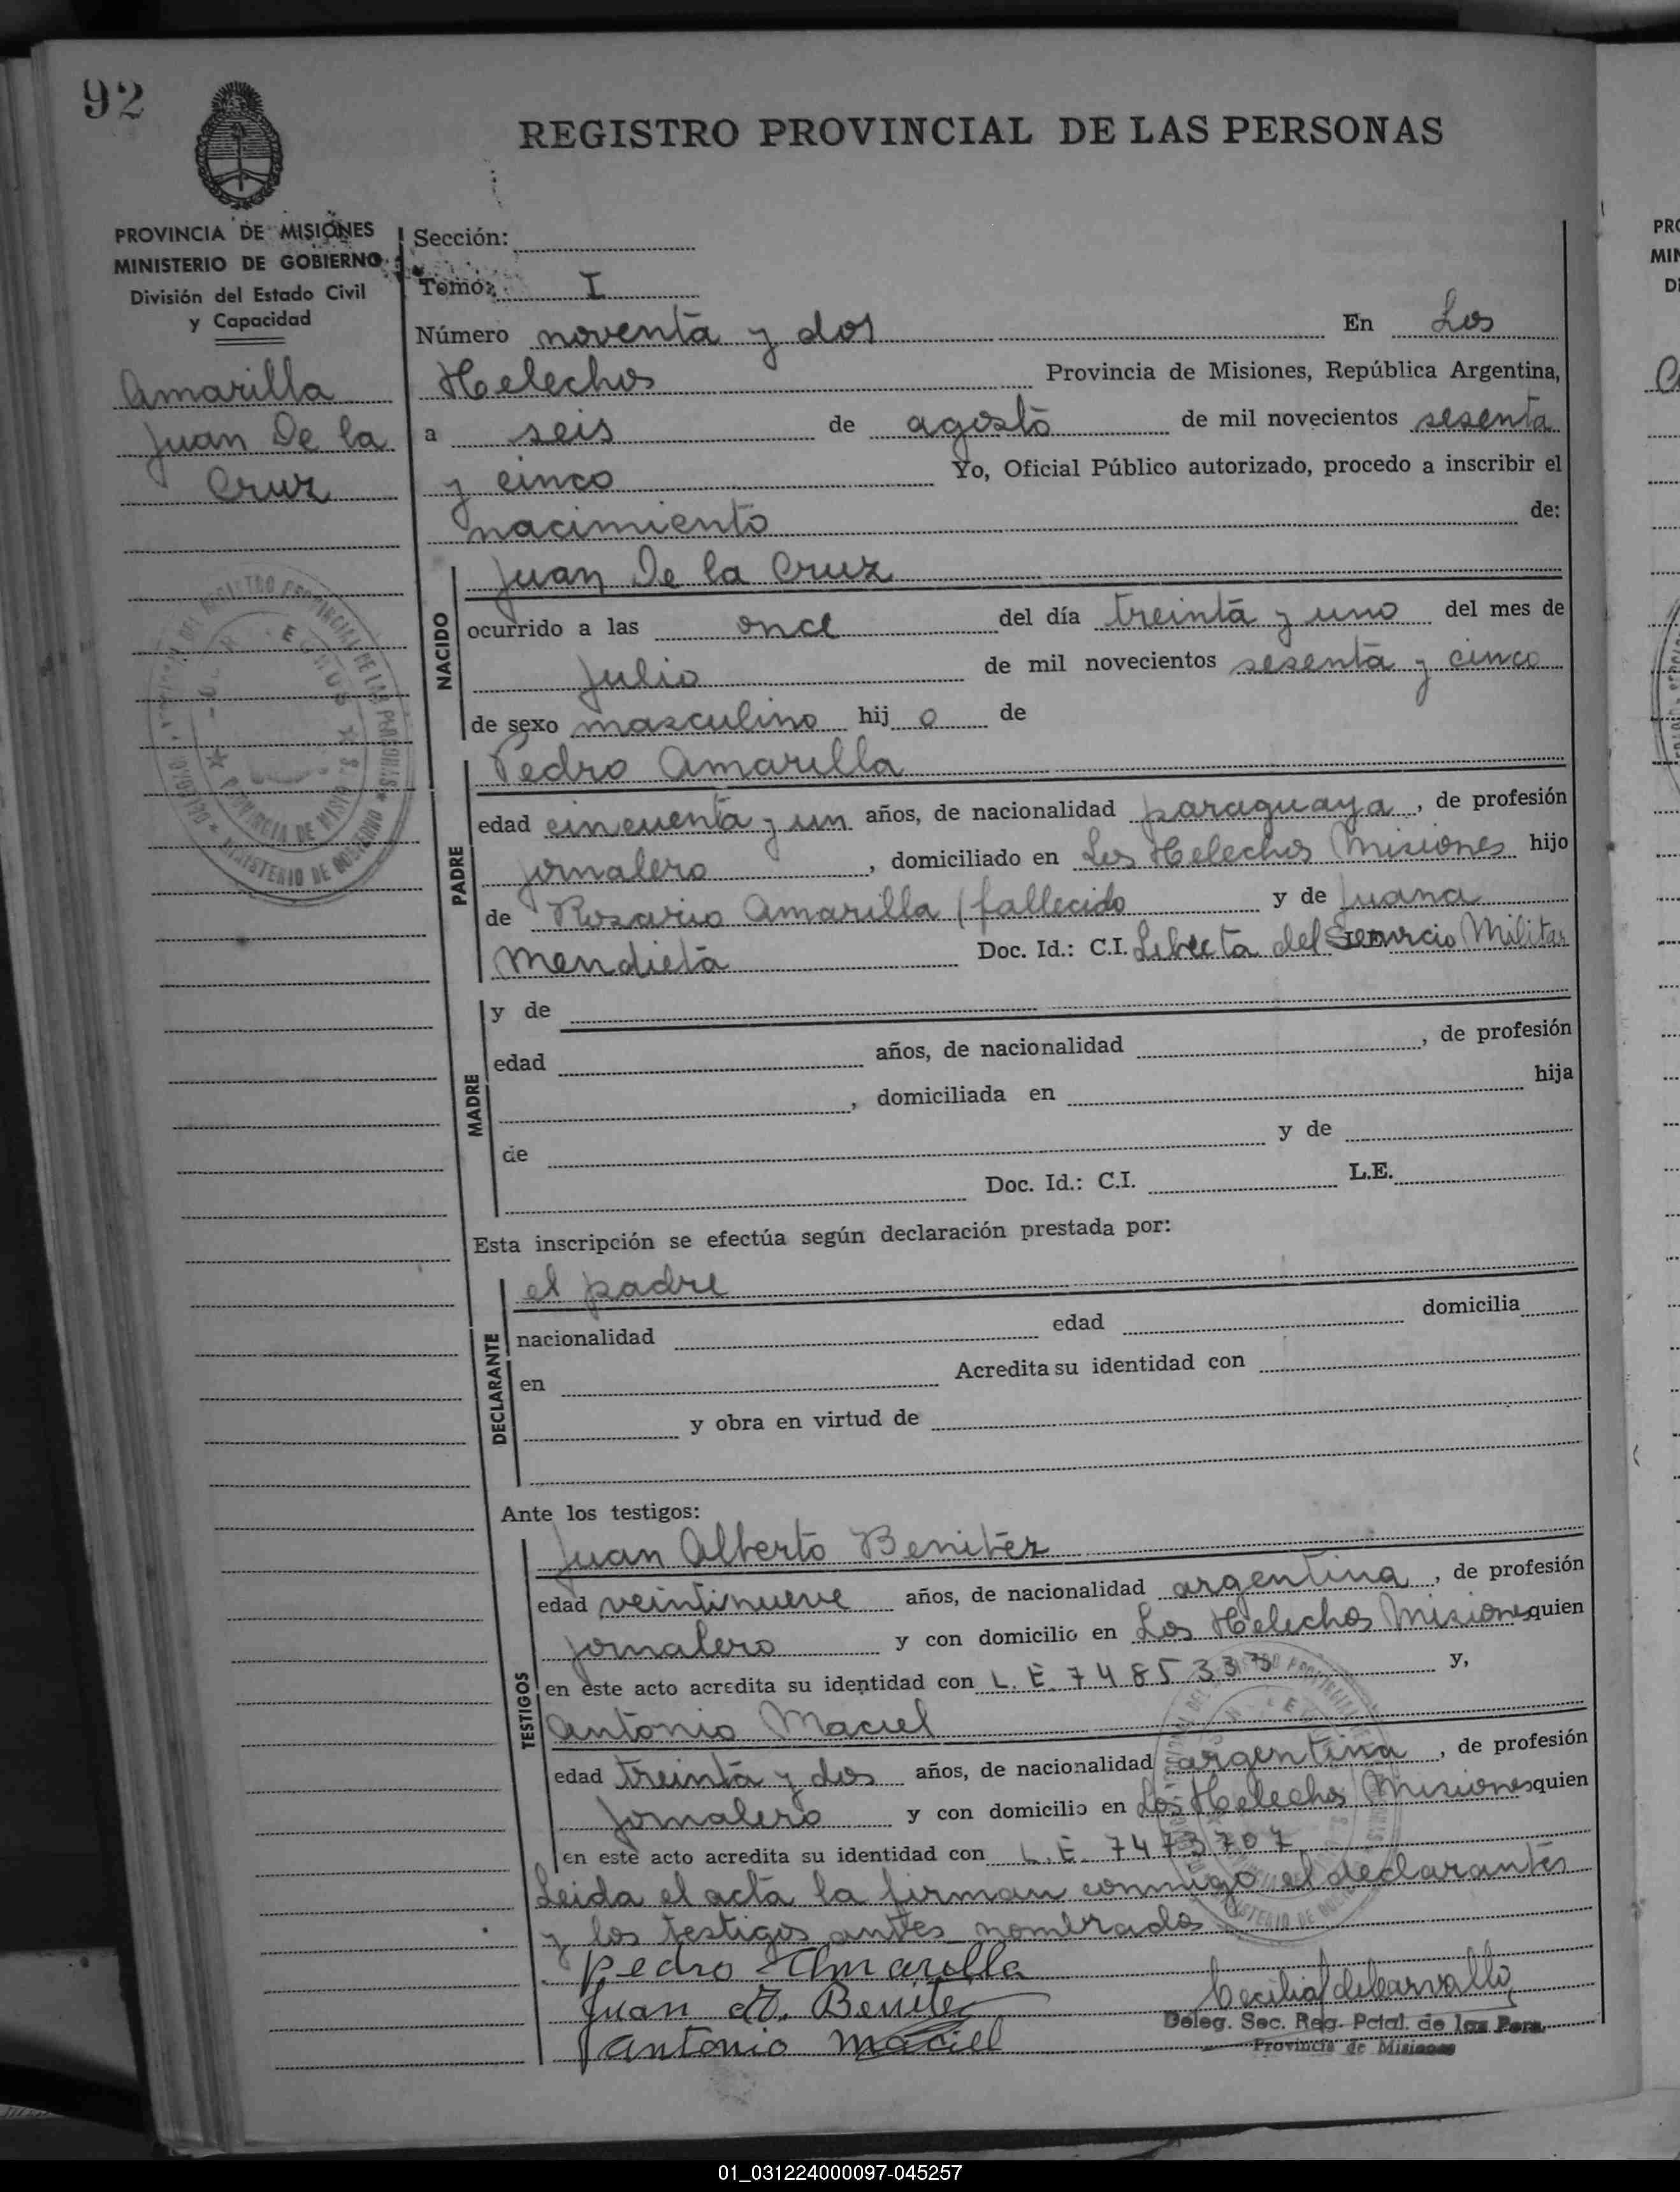 92
REGISTRO PROVINCIAL DE LAS PERSONAS
PROVINCIA DE MISIONES
MINISTERIO DE GOBIERNO
División del Estado Civil
y Capacidad
Amarilla
Juan De la
Cruz
Sección:
Tomo: I
Número noventa y dos En Los
Helechos Provincia de Misiones, República Argentina,
a seis de agosto de mil novecientos sesenta
y cinco Yo, Oficial Público autorizado, procedo a inscribir el
nacimiento de:
NACIDO
Juan De la Cruz
ocurrido a las once del día treinta y uno del mes de
Julio de mil novecientos sesenta y cinco
de sexo masculino hij o de
PADRE
Pedro Amarilla
edad cincuenta y un años, de nacionalidad paraguaya, de profesión
jornalero, domiciliado en Los Helechos Misiones hijo
de Rosario Amarilla (fallecido y de Juana
Mendieta Doc. Id.: C.I. Libreta del Servicio Militar
MADRE
y de
edad años, de nacionalidad , de profesión
, domiciliada en hija
de y de
Doc. Id.: C.I. L.E.
Esta inscripción se efectúa según declaración prestada por:
DECLARANTE
el padre
nacionalidad edad domicilia
en Acredita su identidad con
y obra en virtud de
Ante los testigos:
TESTIGOS
Juan Alberto Benitez
edad veintinueve años, de nacionalidad argentina, de profesión
jornalero y con domicilio en Los Helechos Misiones quien
en este acto acredita su identidad con L. E. 7485337 y,
Antonio Maciel
edad treinta y dos años, de nacionalidad argentina, de profesión
jornalero y con domicilio en Los Helechos Misiones quien
en este acto acredita su identidad con L. E. 7473707
Leida el acta la firman conmigo el declarantes
y los testigos antes nombrados
Pedro Amarilla
Juan A. Benitez
Antonio Maciel
Deleg. Sec. Reg. Pcial. de las Pers.
Provincia de Misiones
01_031224000097-045257